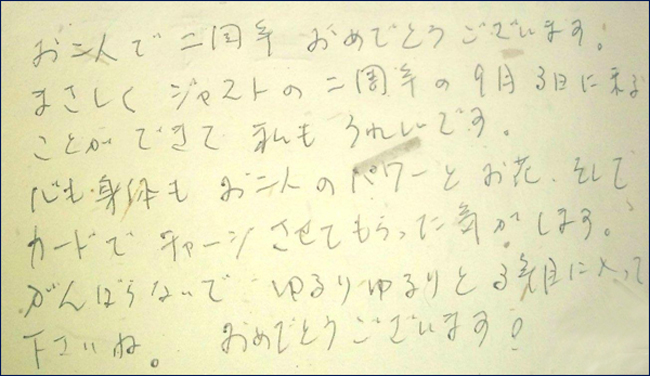 お二人で二周年 おめでとうございます。
まさしく ジャストの二周年の9月3日に来る
ことができて 私も うれしいです。
心も身体も お二人のパワーと お花、そして
カードで チャージさせてもらった気がします。
がんばらないで ゆるりゆるりと 3年目に入って
下さいね。 おめでとうございます!